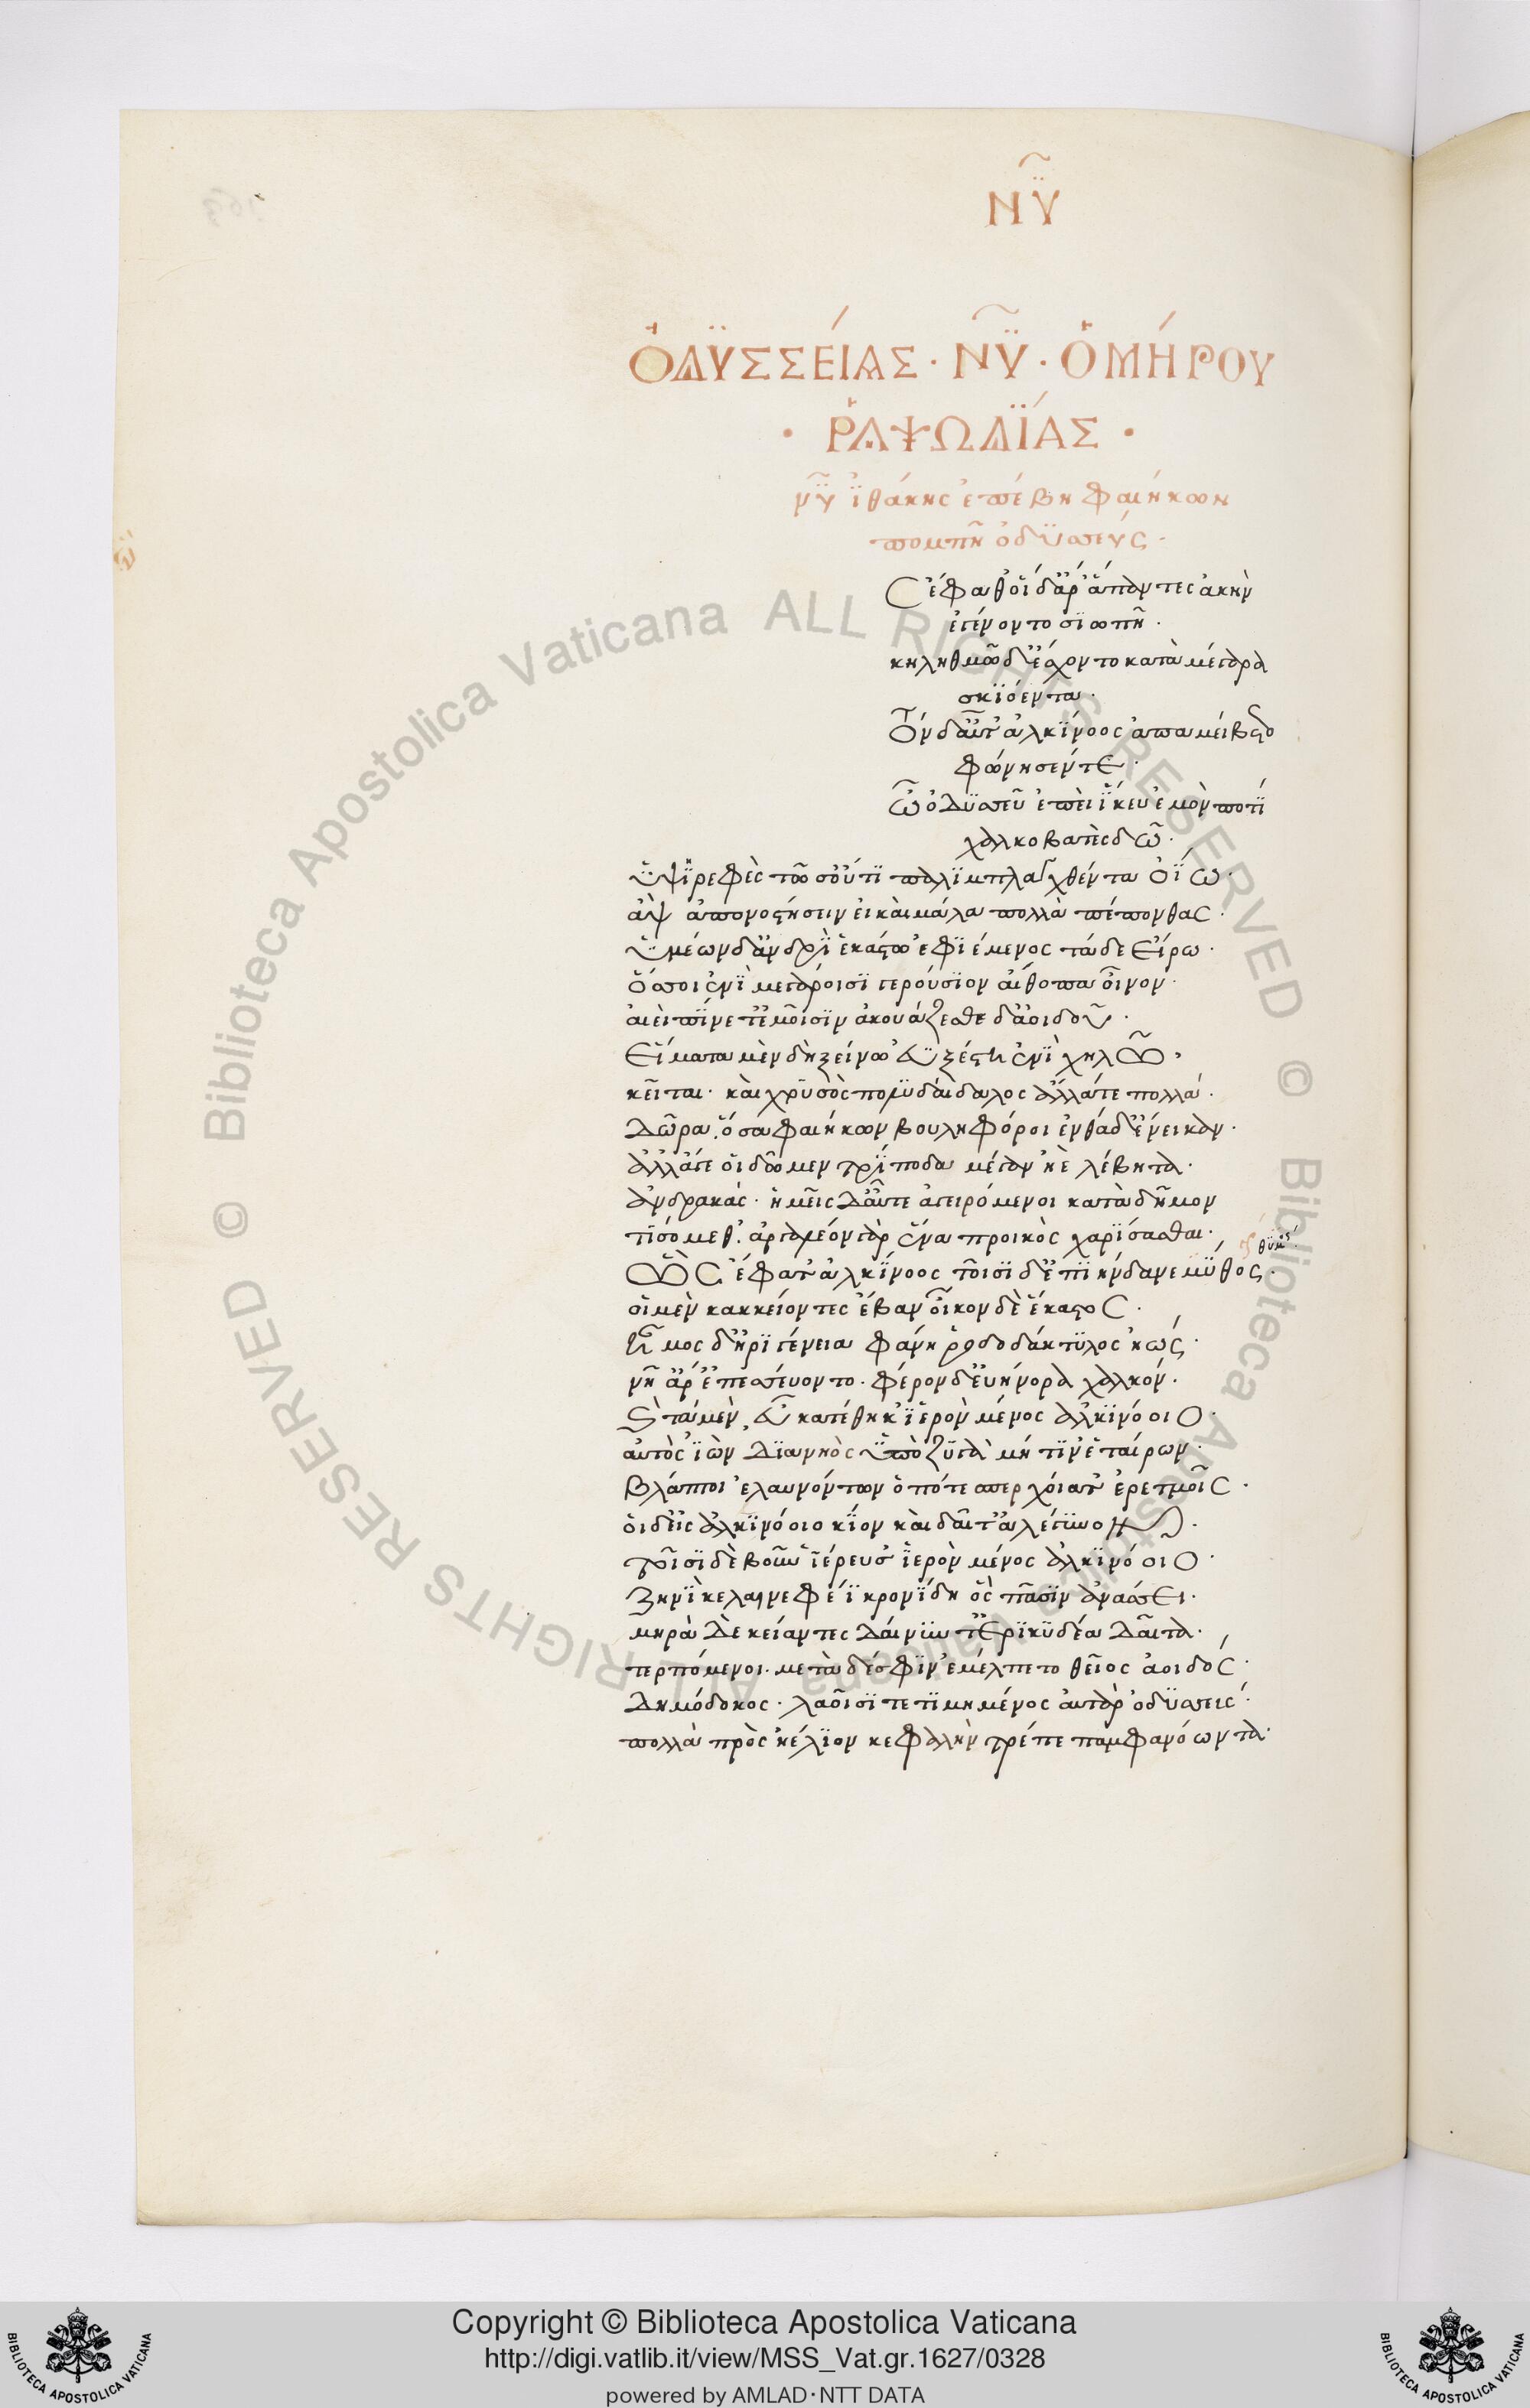 νῦ
ὀδϋσσείας · νῦ · ὁμήρου
· ῥαψωδΐας ·
νῦ ἰθάκης ἐπέβη φαιήκων
πομπῆ ὀδϋσσεύς ·
ς ἔφαθ οἵ δ ἄρ ἅπαντες ἀκὴν
ἐγένοντο σϊωπῆ ·
κηληθμῶ δ ἔσχοντο κατὰ μέγαρα
σκϊόεντα ·
τὸν δ αὖτ ἀλκΐνοος ἀπαμείβετο
φώνησέν τε ·
ὦ ὀδϋσσεῦ ἐπεὶ ΐκευ ἐμὸν ποτὶ
χαλκοβατὲς δῶ ·
ὑψϊρεφὲς τῶ σ οὔτϊ παλϊμπλαγχθέντα ὀΐω ·
ἂψ ἀπονοστήσειν εἰ καὶ μάλα πολλὰ πέπονθας ·
ὑμέων δ ἀνδρὶ ἑκάστω ἐφϊέμενος τάδε εἴρω ·
ὅσσοι ἐνὶ μεγάροισϊ γερούσϊον αἴθοπα οἶνον ·
αἰεὶ πΐνετ ἐμοῖσϊν ἀκουάζεσθε δ ἀοιδοῦ ·
εἵματα μὲν δὴ ξείνω ἐϋξέστη ἐνὶ χηλῶ ·
κεῖται · καὶ χρῡσὸς πολϋδαίδαλος ἄλλά τε πολλά ·
δῶρα · ὅσα φαιήκων βουληφόροι ἐνθάδ ἔνεικαν ·
ἀλλ ἄγε οἱ δῶμεν τρΐποδα μέγαν ἠὲ λέβητα ·
ἀνδρακάς · ἡμεῖς δ αὖτε ἀγειρόμενοι κατὰ δῆμον
τϊσόμεθ · ἀργαλέον γὰρ ἕνα προικὸς χαρΐσασθαι ·
θϋμός ·
ὣς ἔφατ ἀλκΐνοος τοῖσϊ δ ἐπϊήνδανε μῦθος ·
οἱ μὲν κακκείοντες ἔβαν οἶκον δὲ ἕκαστος ·
ἦμος δ ἠρϊγένεια φάνη ῥοδοδάκτϋλος ἠώς ·
νῆ ἄρ ἐπεσσεύοντο · φέρον δ εὐήνορα χαλκόν ·
τὰ μὲν εὖ κατέθηκ ἱερὸν μένος ἀλκϊνόοιο ·
αὐτὸς ἰὼν δϊανηὸς ὑπὸ ζυγὰ μή τϊν ἑταίρων ·
βλάπτοι ἐλαυνόντων ὁπότε σπερχοίατ ἐρετμοῖς ·
οἱ δ εἰς ἀλκϊνόοιο κΐον καὶ δαῖτ ἀλέγϋνον ·
τοῖσϊ δὲ βοῦν ἱέρευσ ἱερὸν μένος ἀλκϊνόοιο ·
ζηνὶ κελαινεφέϊ κρονΐδη ὃς πᾶσϊν ἀνάσσει ·
μηρὰ δὲ κείαντες δαίνυντ ἐρϊκϋδέα δαῖτα ·
τερπόμενοι · μετὰ δέ σφϊν ἐμέλπετο θεῖος ἀοιδός ·
δημόδοκος · λαοῖσϊ τετϊμημένος αὐτὰρ ὀδϋσσεύς ·
πολλὰ πρὸς ἠέλϊον κεφαλὴν τρέπε παμφανόωντα ·
© Biblioteca Apostolica Vaticana ALL RIGHTS RESERVED © Biblioteca Apostolica Vaticana ALL RIGHTS RESERVED
Copyright © Biblioteca Apostolica Vaticana
http://digi.vatlib.it/view/MSS_Vat.gr.1627/0328
powered by AMLAD · NTT DATA
BIBLIOTECA APOSTOLICA VATICANA
BIBLIOTECA APOSTOLICA VATICANA